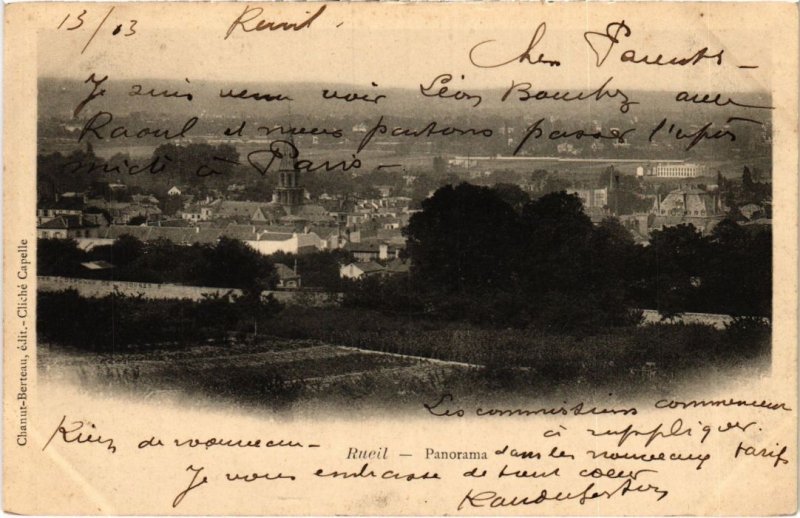 15/ 03 Rueil.
Chers Parents –
Je suis venu voir Léon Bouchez avec
Raoul et nous partons passer l'après
midi à Paris –
Chanut-Berteau, édit. - Cliché Capelle
Rueil — Panorama
Rien de nouveau –
Les commissions commencent
à s'appliquer
dans les nouveaux tarifs
Je vous embrasse de tout cœur